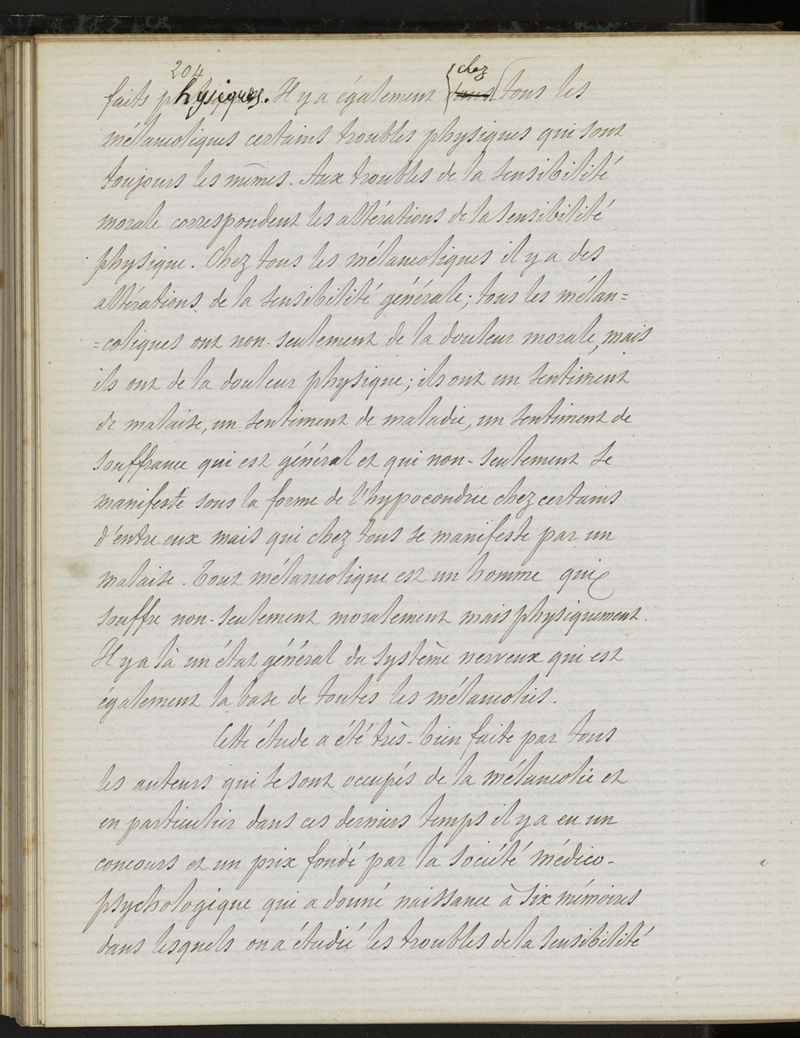 204
chez
faits physiques. Il y a également dans tous les
mélancoliques certains troubles physiques qui sont
toujours les mêmes. Aux troubles de la sensibilité
morale correspondent les altérations de la sensibilité
physique. Chez tous les mélancoliques il y a des
altérations de la sensibilité générale; tous les mélan=
=coliques ont non-seulement de la douleur morale, mais
ils ont de la douleur physique; ils ont un sentiment
de malaise, un sentiment de maladie, un sentiment de
souffrance qui est général et qui non-seulement se
manifeste sous la forme de l'hypocondrie chez certains
d'entre eux mais qui chez tous se manifeste par un
malaise. Tout mélancolique est un homme qui
souffre non-seulement moralement mais physiquement.
Il y a là un état général du système nerveux qui est
également la base de toutes les mélancolies.
Cette étude a été très-bien faite par tous
les auteurs qui se sont occupés de la mélancolie et
en particulier dans ces derniers temps il y a eu un
concours et un prix fondé par la société médico-
psychologique qui a donné naissance à six mémoires
dans lesquels on a étudié les troubles de la sensibilité